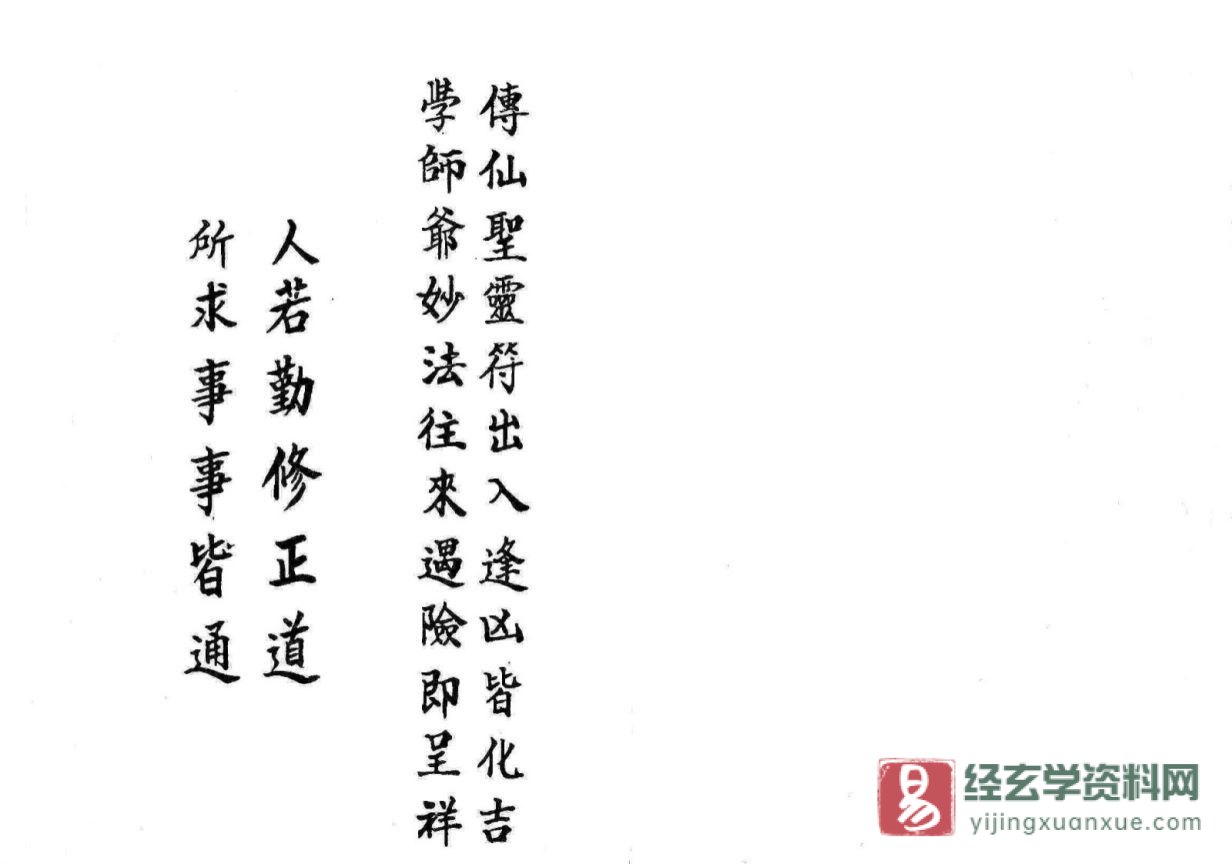 傳仙聖靈符出入逢凶皆化吉
學師爺妙法往來遇險即呈祥
人若勤修正道
所求事事皆通
易
经玄学资料网
yijingxuanxue.com